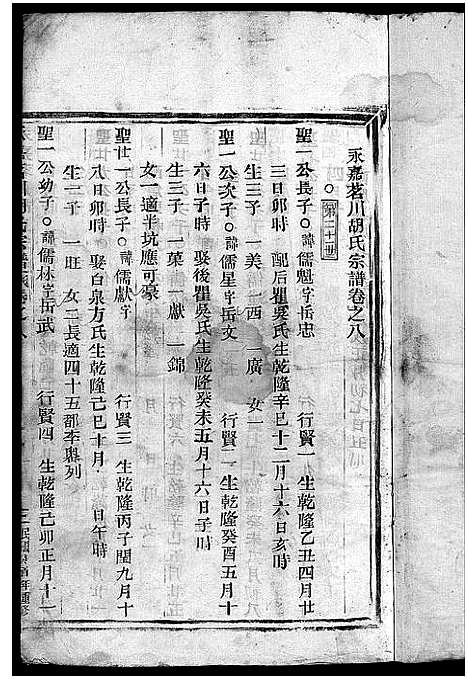 永嘉茗川胡氏宗譜卷之八
第二十一世
聖一公長子○諱儒魁字岳忠 行賢一 生乾隆乙丑四月廿
三日卯時 配后瞿吳氏生乾隆辛巳十二月十六日亥時
生三子 一美 一西 一廣 女一
聖一公次子○諱儒星字岳文 行賢二 生乾隆癸酉五月十
六日子時 娶後瞿吳氏生乾隆癸未五月十六日子時
生三子 一菓 一獻 一錦
女一適半坑應可豪
聖仕一公長子○諱儒獻字 行賢三 生乾隆丙子閏九月十
八日卯時 娶白泉方氏生乾隆己巳十月 日午時
生一子 一旺 女二長適四十五都李聯列
聖一公幼子○諱儒林字岳武 行賢四 生乾隆己卯正月十二